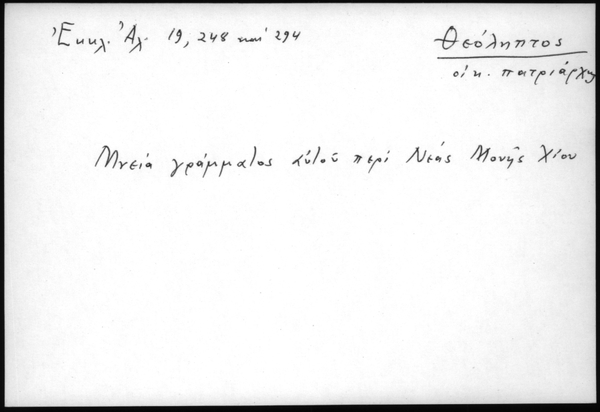 Ἐκκλ. Ἀλ. 19, 248 καὶ 294
Θεόληπτος
οἰκ. πατριάρχης
Μνεία γράμματος αὐτοῦ περὶ Νεάς Μονῆς Χίου